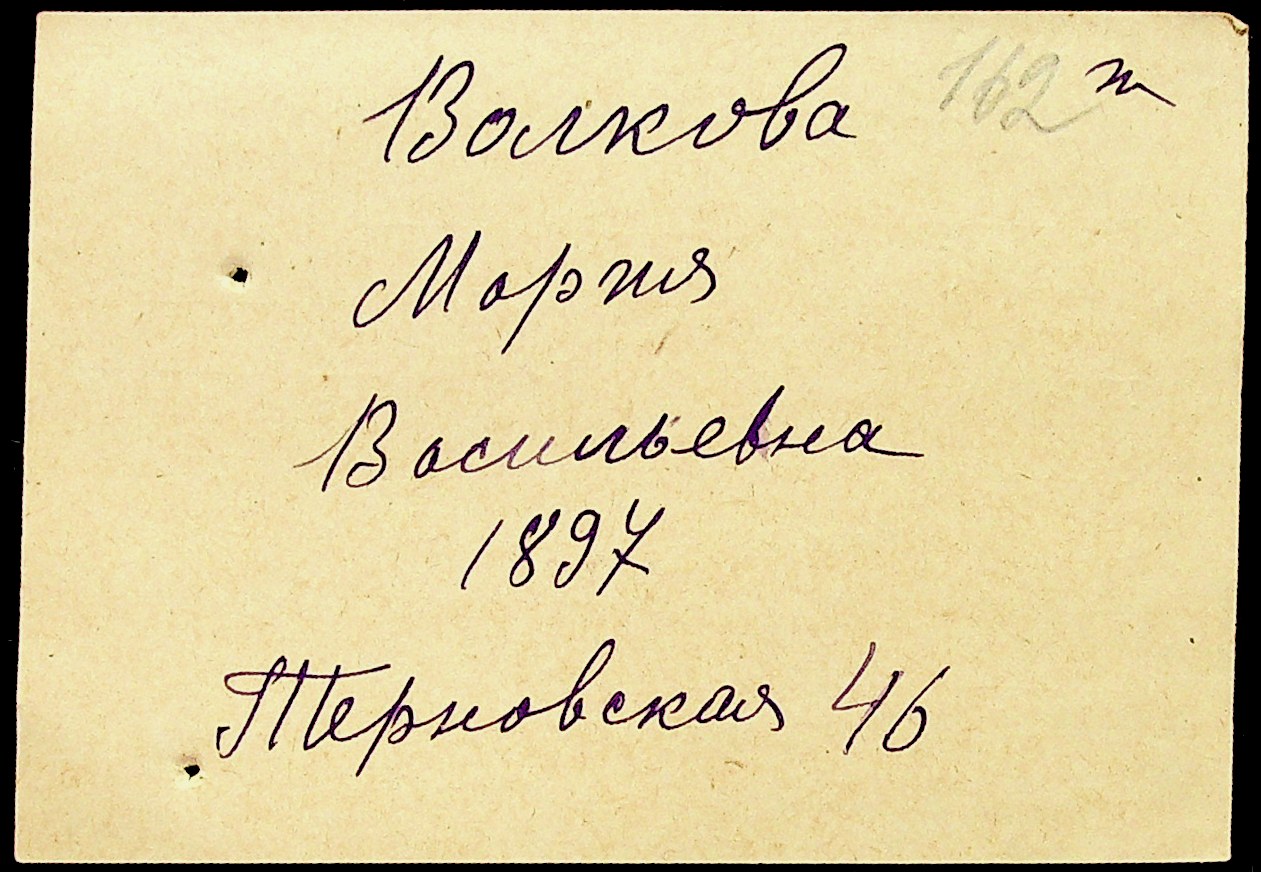 Волкова 162
Мария
Васильевна
1897
Терновская 46